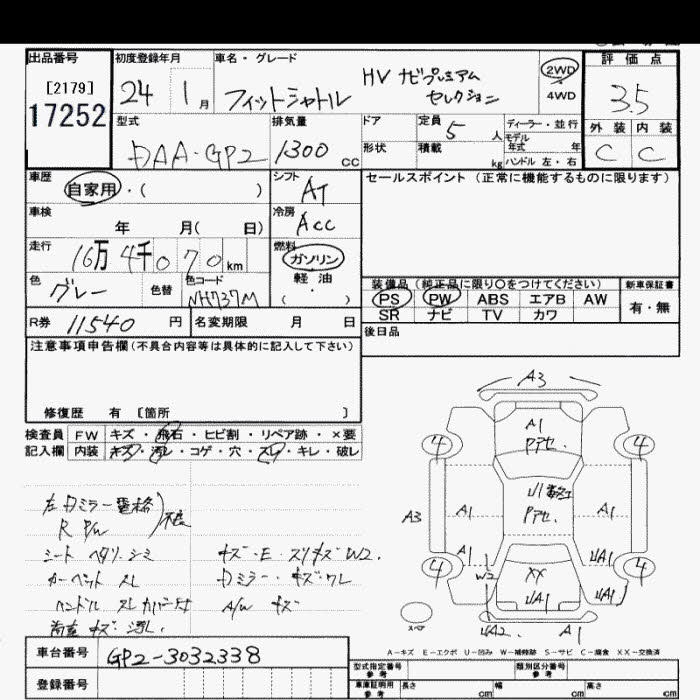 出品番号
[2179]
17252
初度登録年月
24 1月
車名・グレード
HV ナビプレミアム
フィットシャトル セレクション
2WD
4WD
評価点
3.5
外装 内装
C C
型式
DAA-GP2
排気量
1300 cc
ドア
形状
定員 5 人
積載 kg
ディーラー・並行
モデル年式 年
ハンドル 左・右
車歴
自家用・( )
シフト
AT
セールスポイント (正常に機能するものに限ります)
車検
年 月( 日)
冷房
Acc
走行
16万 4千 0 7 0 km
燃料
ガソリン
軽油
( ・ )
色
グレー
色替
色コード
NH737M
装備品 (純正品に限り○をつけてください)
新車保証書
PS PW ABS エアB AW
有・無
SR ナビ TV カワ
R券 11540 円
名変期限 月 日
後日品
注意事項申告欄(不具合内容等は具体的に記入して下さい)
修復歴 有 [箇所 ]
検査員 FW キズ・飛石・ヒビ割・リペア跡・×要
記入欄 内装 キズ・汚レ・コゲ・穴・スレ・キレ・破レ
左Dミラー電格
R P/W
不良
シート ヘタリ・シミ
カーペット スレ
ハンドル スレ カバー付
荷室 キズ・汚レ
キズ・E・スリキズ W2.
Dミラー・キズ・ワレ
A/W キズ
A3
A1
Pアセ.
4 4
U1
Pアセ.
A3
A1
A1
A1
W2
UA1
4 4
XX
UA1
UA1
スペア
UA2.
A1
A-キズ E-エクボ U-凹み W-補修跡 S-サビ C-腐食 XX-交換済
車台番号
GP2-3032338
登録番号
型式指定番号
参考
類別区分番号
参考
車庫証明用
参考
長さ cm
幅 cm
高さ cm